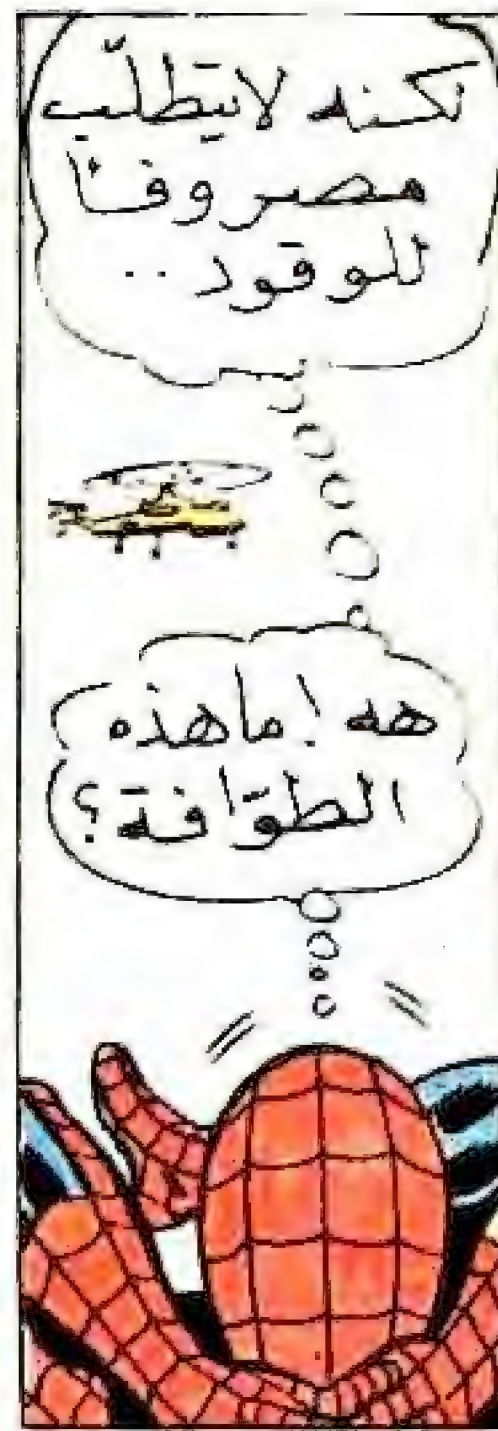 لكنه لا يتطلّب
مصروفاً
للوقود ..
هه ! ما هذه
الطوّافة ؟